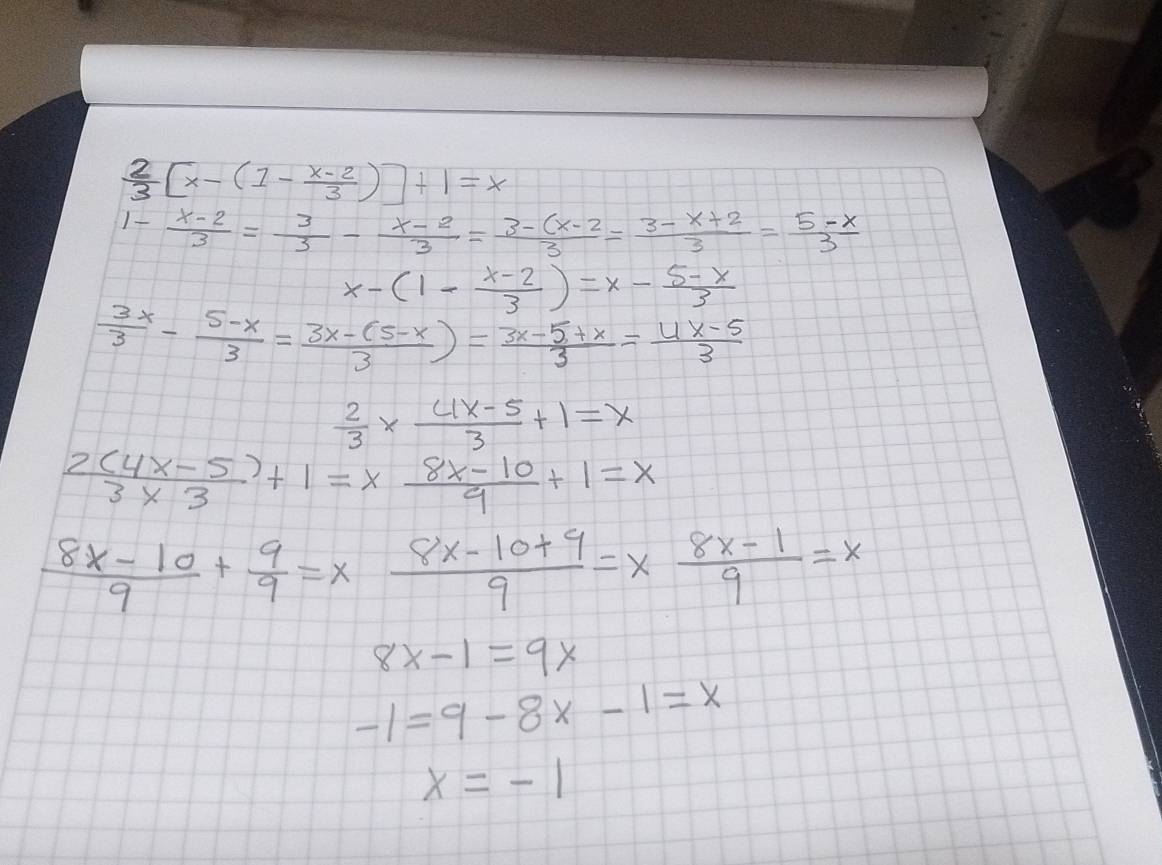 2/3 [x - (1 - x-2/3)] + 1 = x
1 - x-2/3 = 3/3 - x-2/3 = 3-(x-2/3 = 3-x+2/3 = 5-x/3
x - (1 - x-2/3) = x - 5-x/3
3x/3 - 5-x/3 = 3x-(5-x/3) = 3x-5+x/3 = 4x-5/3
2/3 × 4x-5/3 + 1 = x
2(4x-5)/3×3 + 1 = x 8x-10/9 + 1 = x
8x-10/9 + 9/9 = x 8x-10+9/9 = x 8x-1/9 = x
8x-1 = 9x
-1 = 9-8x -1 = x
x = -1